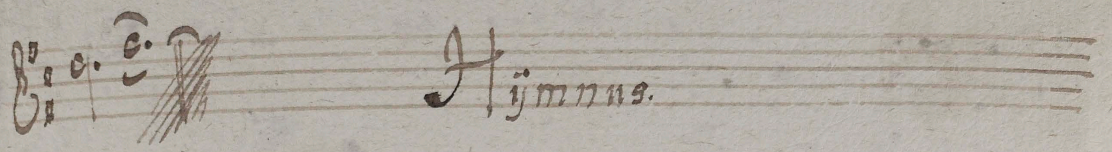 Hÿmnus.